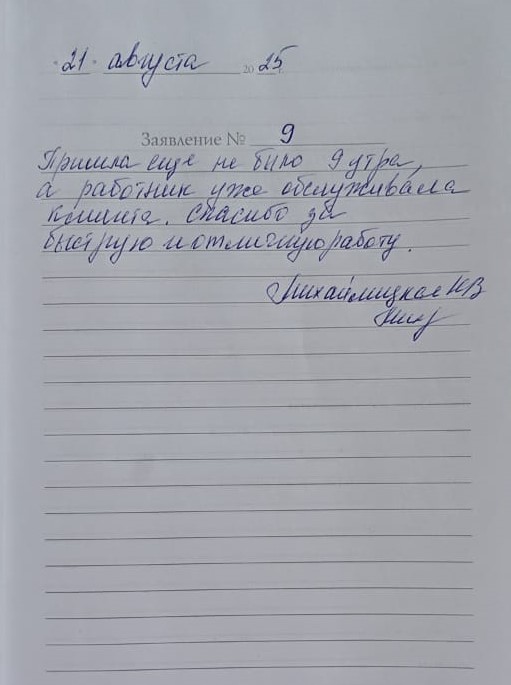 "21" августа 2025
Заявление № 9
Пришла еще не было 9 утра,
а работник уже обслуживала
клиента. Спасибо за
быструю и отличную работу.